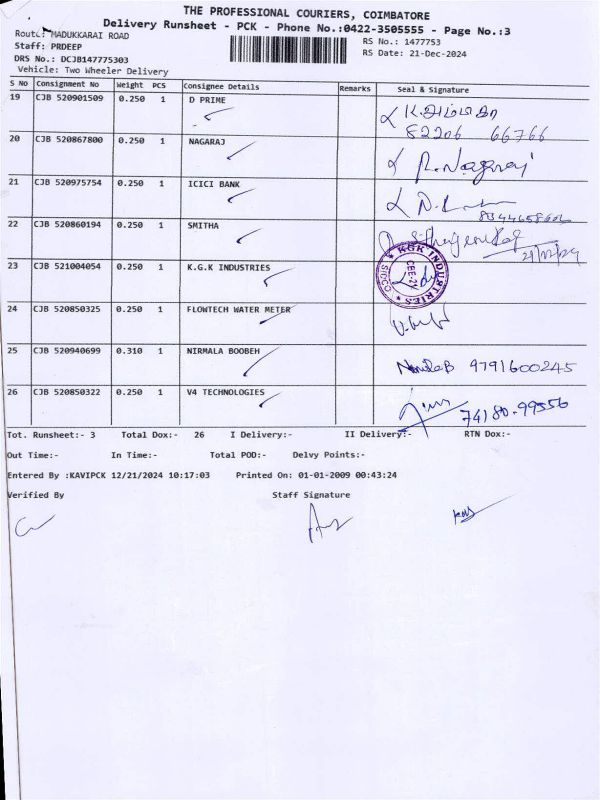 THE PROFESSIONAL COURIERS, COIMBATORE
Delivery Runsheet - PCK - Phone No.:0422-3505555 - Page No.:3
Route: MADUKKARAI ROAD
RS No.: 1477753
Staff: PRDEEP
RS Date: 21-Dec-2024
DRS No.: DCJB147775303
Vehicle: Two Wheeler Delivery
S No Consignment No Weight PCS Consignee Details Remarks Seal & Signature
19 CJB 520901509 0.250 1 D PRIME
82206 66766
20 CJB 520867800 0.250 1 NAGARAJ R.Nagaraj
21 CJB 520975754 0.250 1 ICICI BANK
22 CJB 520860194 0.250 1 SMITHA
21/12/24
23 CJB 521004054 0.250 1 K.G.K INDUSTRIES KGK INDUSTRIES
24 CJB 520850325 0.250 1 FLOWTECH WATER METER
25 CJB 520940699 0.310 1 NIRMALA BOOBEH 9791600245
26 CJB 520850322 0.250 1 V4 TECHNOLOGIES 74180-99556
Tot. Runsheet:- 3 Total Dox:- 26 I Delivery:- II Delivery:- RTN Dox:-
Out Time:- In Time:- Total POD:- Delvy Points:-
Entered By :KAVIPCK 12/21/2024 10:17:03 Printed On: 01-01-2009 00:43:24
Verified By Staff Signature